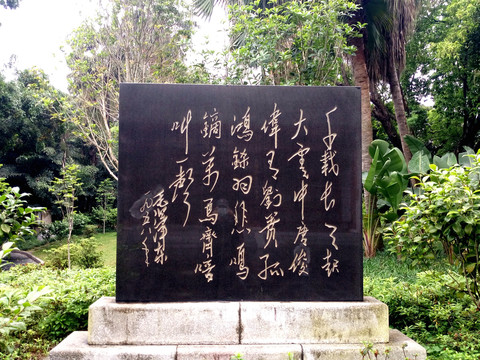 千載長天起
大雲中唐俊
偉有劉蕡孤
鴻鎩羽悲鳴
鏑萬馬齊喑
叫一聲
一九五八年